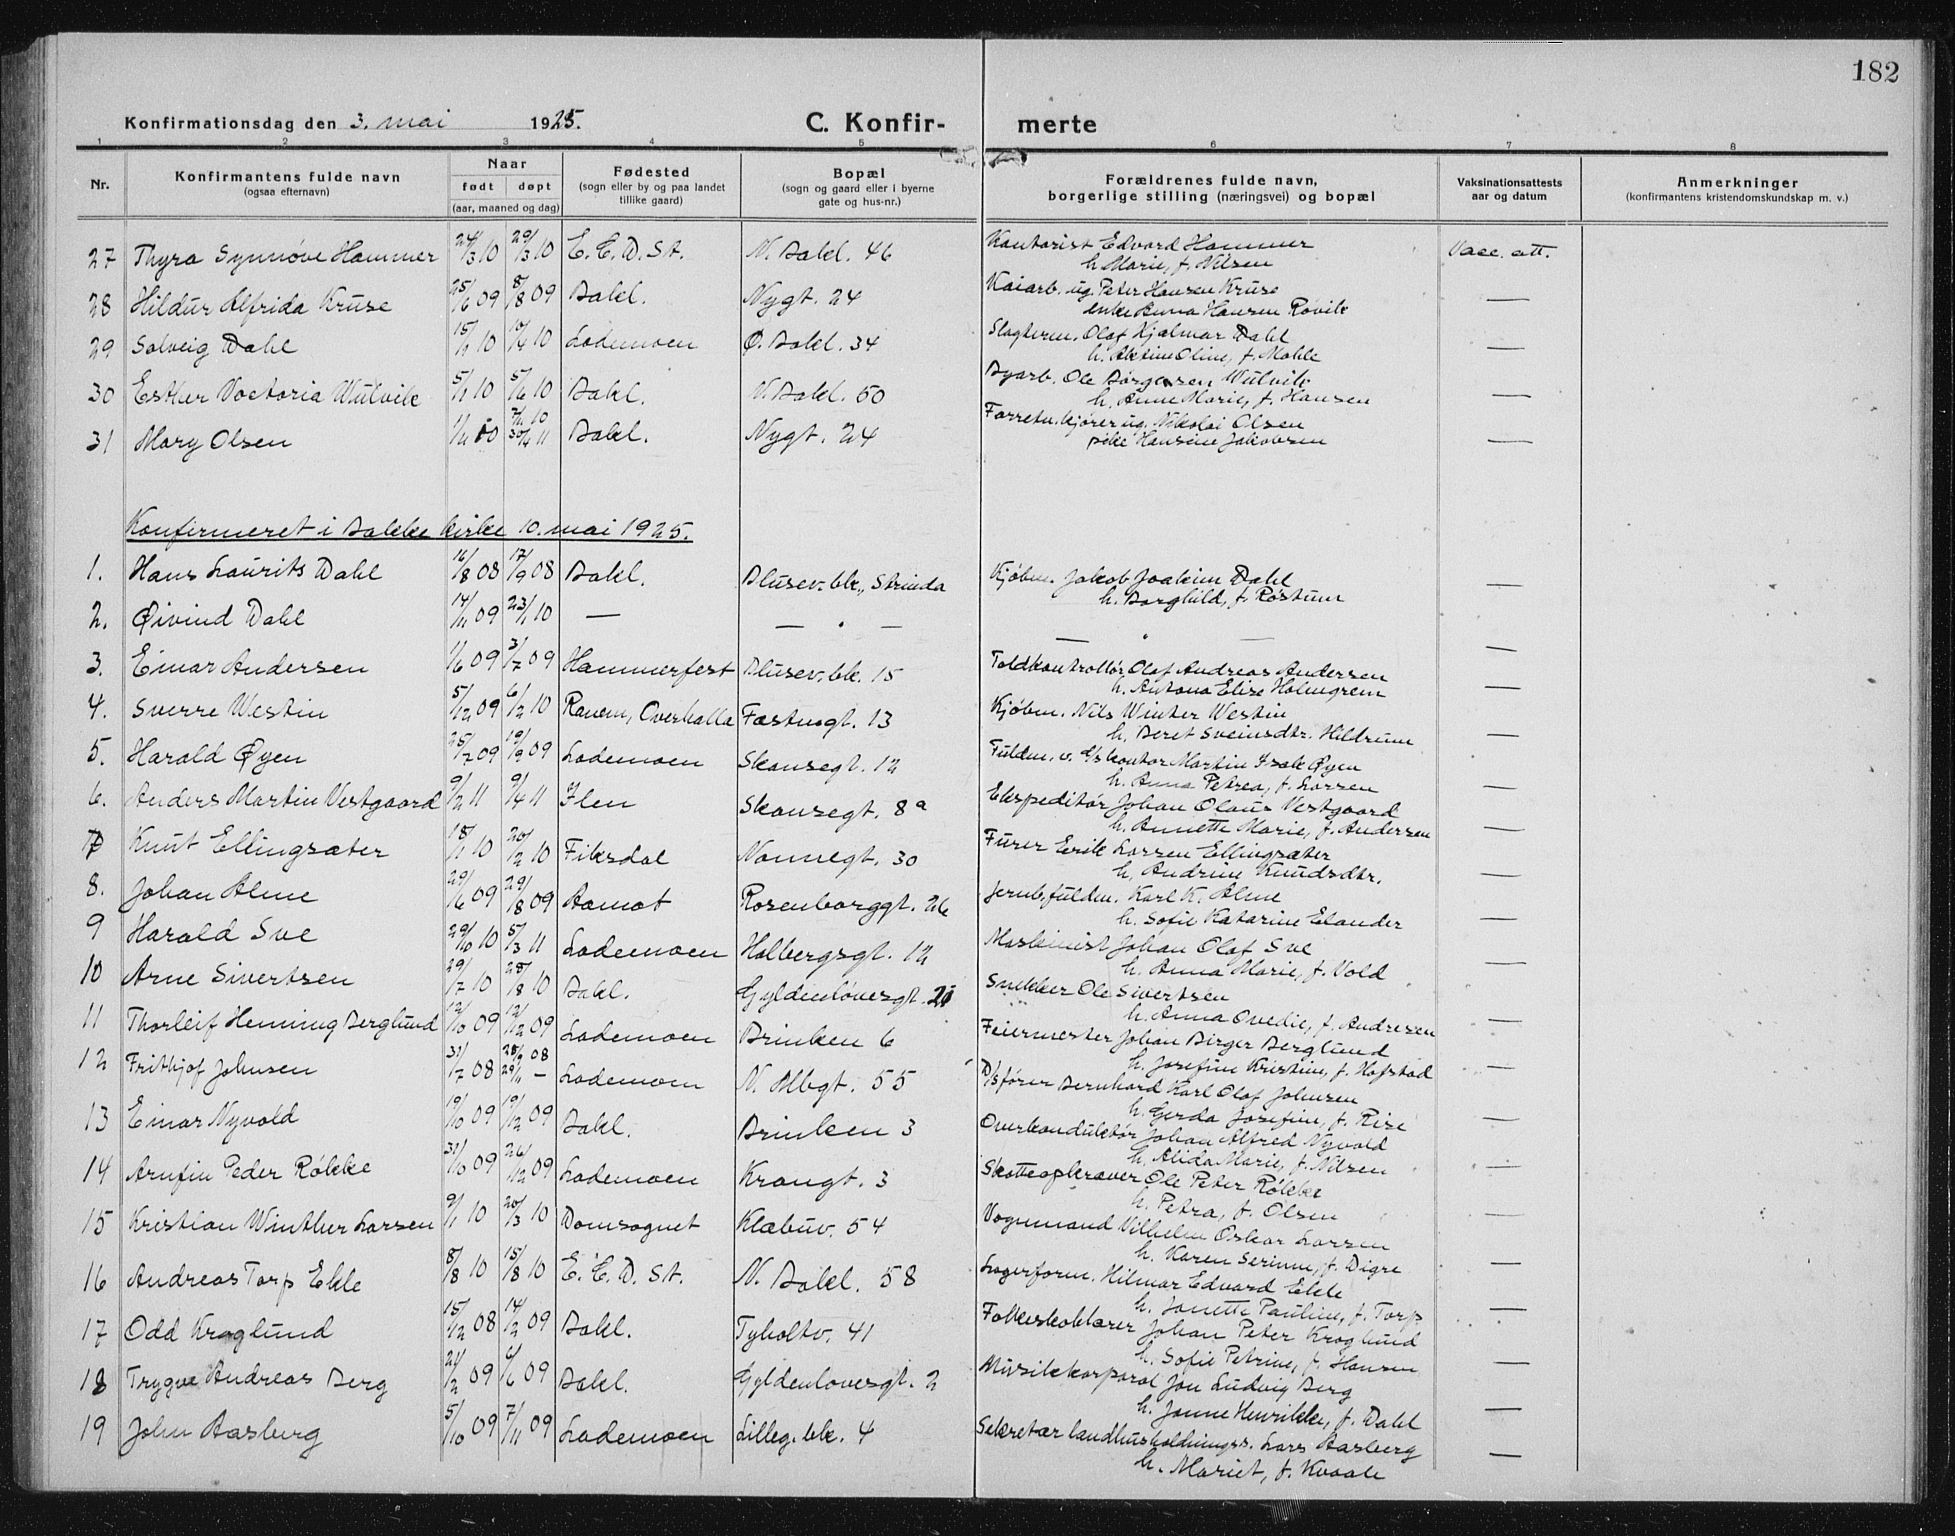 182
Konfirmationsdag den 3. mai 1925. C. Konfir- merte
1 2 3 4 5 6 7 8
Nr. Konfirmantens fulde navn (ogsaa efternavn) Naar født døpt (aar, maaned og dag) Fødested (sogn eller by og paa landet tillike gaard) Bopæl (sogn og gaard eller i byerne gate og hus-nr.) Forældrenes fulde navn, borgerlige stilling (næringsvei) og bopæl Vaksinationsattests aar og datum Anmerkninger (konfirmantens kristendomskundskap m. v.)
27 Thyra Synnøve Hammer 24/3 10 29/3 10 E. C. D. St. N. Bakl. 46 Kontorist Edvard Hammer Vacc. att.
h. Marie, f. Nilsen
28 Hildur Alfrida Kruse 25/6 09 8/8 09 Bakl. Nygt. 24 Kaiarb. ug. Peter Hansen Kruse —
enke Anna Hansen Røvik
29 Solveig Dahl 10 10 Lademoen Ø. Bakl. 34 Slagterm. Olaf Hjalmar Dahl —
h. Oline, f. Mohle
30 Esther Voctoria Wulvik 5/1 10 5/6 10 Bakl. N. Bakl. 50 Byarb. Ole Børgersen Wulvik —
h. Anne Marie, f. Hansen
31 Mary Olsen 10 30/4 11 Bakl. Nygt. 24 Forretn.kjører ug. Nikolai Olsen —
pike Hansine Jakobsen
Konfirmeret i Bakke kirke 10. mai 1925.
1. Hans Laurits Dahl 16/8 08 17/9 08 Bakl. Blusev.bk., Strinda Kjøbm. Jakob Joakim Dahl —
h. Borghild, f. Røstum
2. Øivind Dahl 14/11 09 23/1 10 — — " — — " — —
3. Einar Andersen 1/6 09 3/7 09 Hammerfest Blusev.bk. 15 Toldkontrollør Olaf Andreas Andersen —
h. Antona Elise Holmgren
4. Sverre Westin 5/12 09 6/2 10 Ranem, Overhalla Fæstnsgt. 13 Kjøbm. Nils Winter Westin —
h. Beret Sveinsdtr. Hiltrum
5. Harald Øyen 25/7 09 19/9 09 Lademoen Skansegt. 12 Fuldm. v. kontor Martin Isak Øyen —
h. Anna Petrea, f. Larsen
6. Anders Martin Vestgaard 9/2 11 9/4 11 Ilen Skansegt. 8a Ekspeditør Johan Olaus Vestgaard —
h. Annette Marie, f. Andersen
7 Knut Ellingsæter 18/1 10 20/2 10 Fiksdal Nonnegt. 30 Furer Erik Larsen Ellingsæter —
h. Andrine Knudsdtr.
8. Johan Alme 29/6 09 29/8 09 Aamot Rosenborggt. 26 Jernb.fuldm. Karl K. Alme —
h. Sofie Katarine Elander
9 Harald Sve 29/10 10 5/3 11 Lademoen Holbergsgt. 12 Maskinist Johan Olaf Sve —
h. Anna Marie, f. Vold
10 Arne Sivertsen 29/7 10 28/8 10 Bakl. Gyldenløvesgt. 21 Snikker Ole Sivertsen —
h. Anna Ovedie, f. Andresen
11 Thorleif Henning Berglund 12/10 09 12/12 09 Lademoen Brinken 6 Feiermester Johan Birger Berglund —
h. Josefine Kristine, f. Hofstad
12 Frithjof Johnsen 31/7 08 08 29/11 — Lademoen N. Albgt. 55 D/sfører Bernhard Karl Olaf Johnsen —
h. Gerda Josefine, f. Rise
13 Einar Nyvold 19/10 09 19/12 09 Bakl. Brinken 3 Overkonduktør Johan Alfred Nyvold —
h. Alida Marie, f. Nilsen
14 Arnfin Peder Røkke 31/10 09 26/12 09 Lademoen Krangt. 3 Skatteopkræver Ole Peter Røkke —
h. Petra, f. Olsen
15 Kristian Winther Larsen 9/1 10 20/3 10 Domsognet Klæbuv. 54 Vognmand Vilhelm Oskar Larsen —
h. Karen Serinne, f. Digre
16 Andreas Torp Ekle 8/8 10 15/8 10 E. C. D. St. N. Bakl. 58 Lagerform. Hilmar Edvard Ekle —
h. Janette Pauline, f. Torp
17 Odd Kroglund 15/12 08 14/2 09 Bakl. Tyholtv. 41 Folkeskolelærer Johan Peter Kroglund —
h. Sofie Petrine, f. Hansen
18 Trygve Andreas Berg 21/2 09 6/6 09 Bakl. Gyldenløvesgt. 2 Musikkorporal Jon Ludvig Berg —
h. Janne Henrikke, f. Dahl
19 John Aasberg 5/10 09 7/11 09 Lademoen Lilleg.bk. 4 Sekretær landhusholdningss. Lars Aasberg —
h. Mariet, f. Kvaale